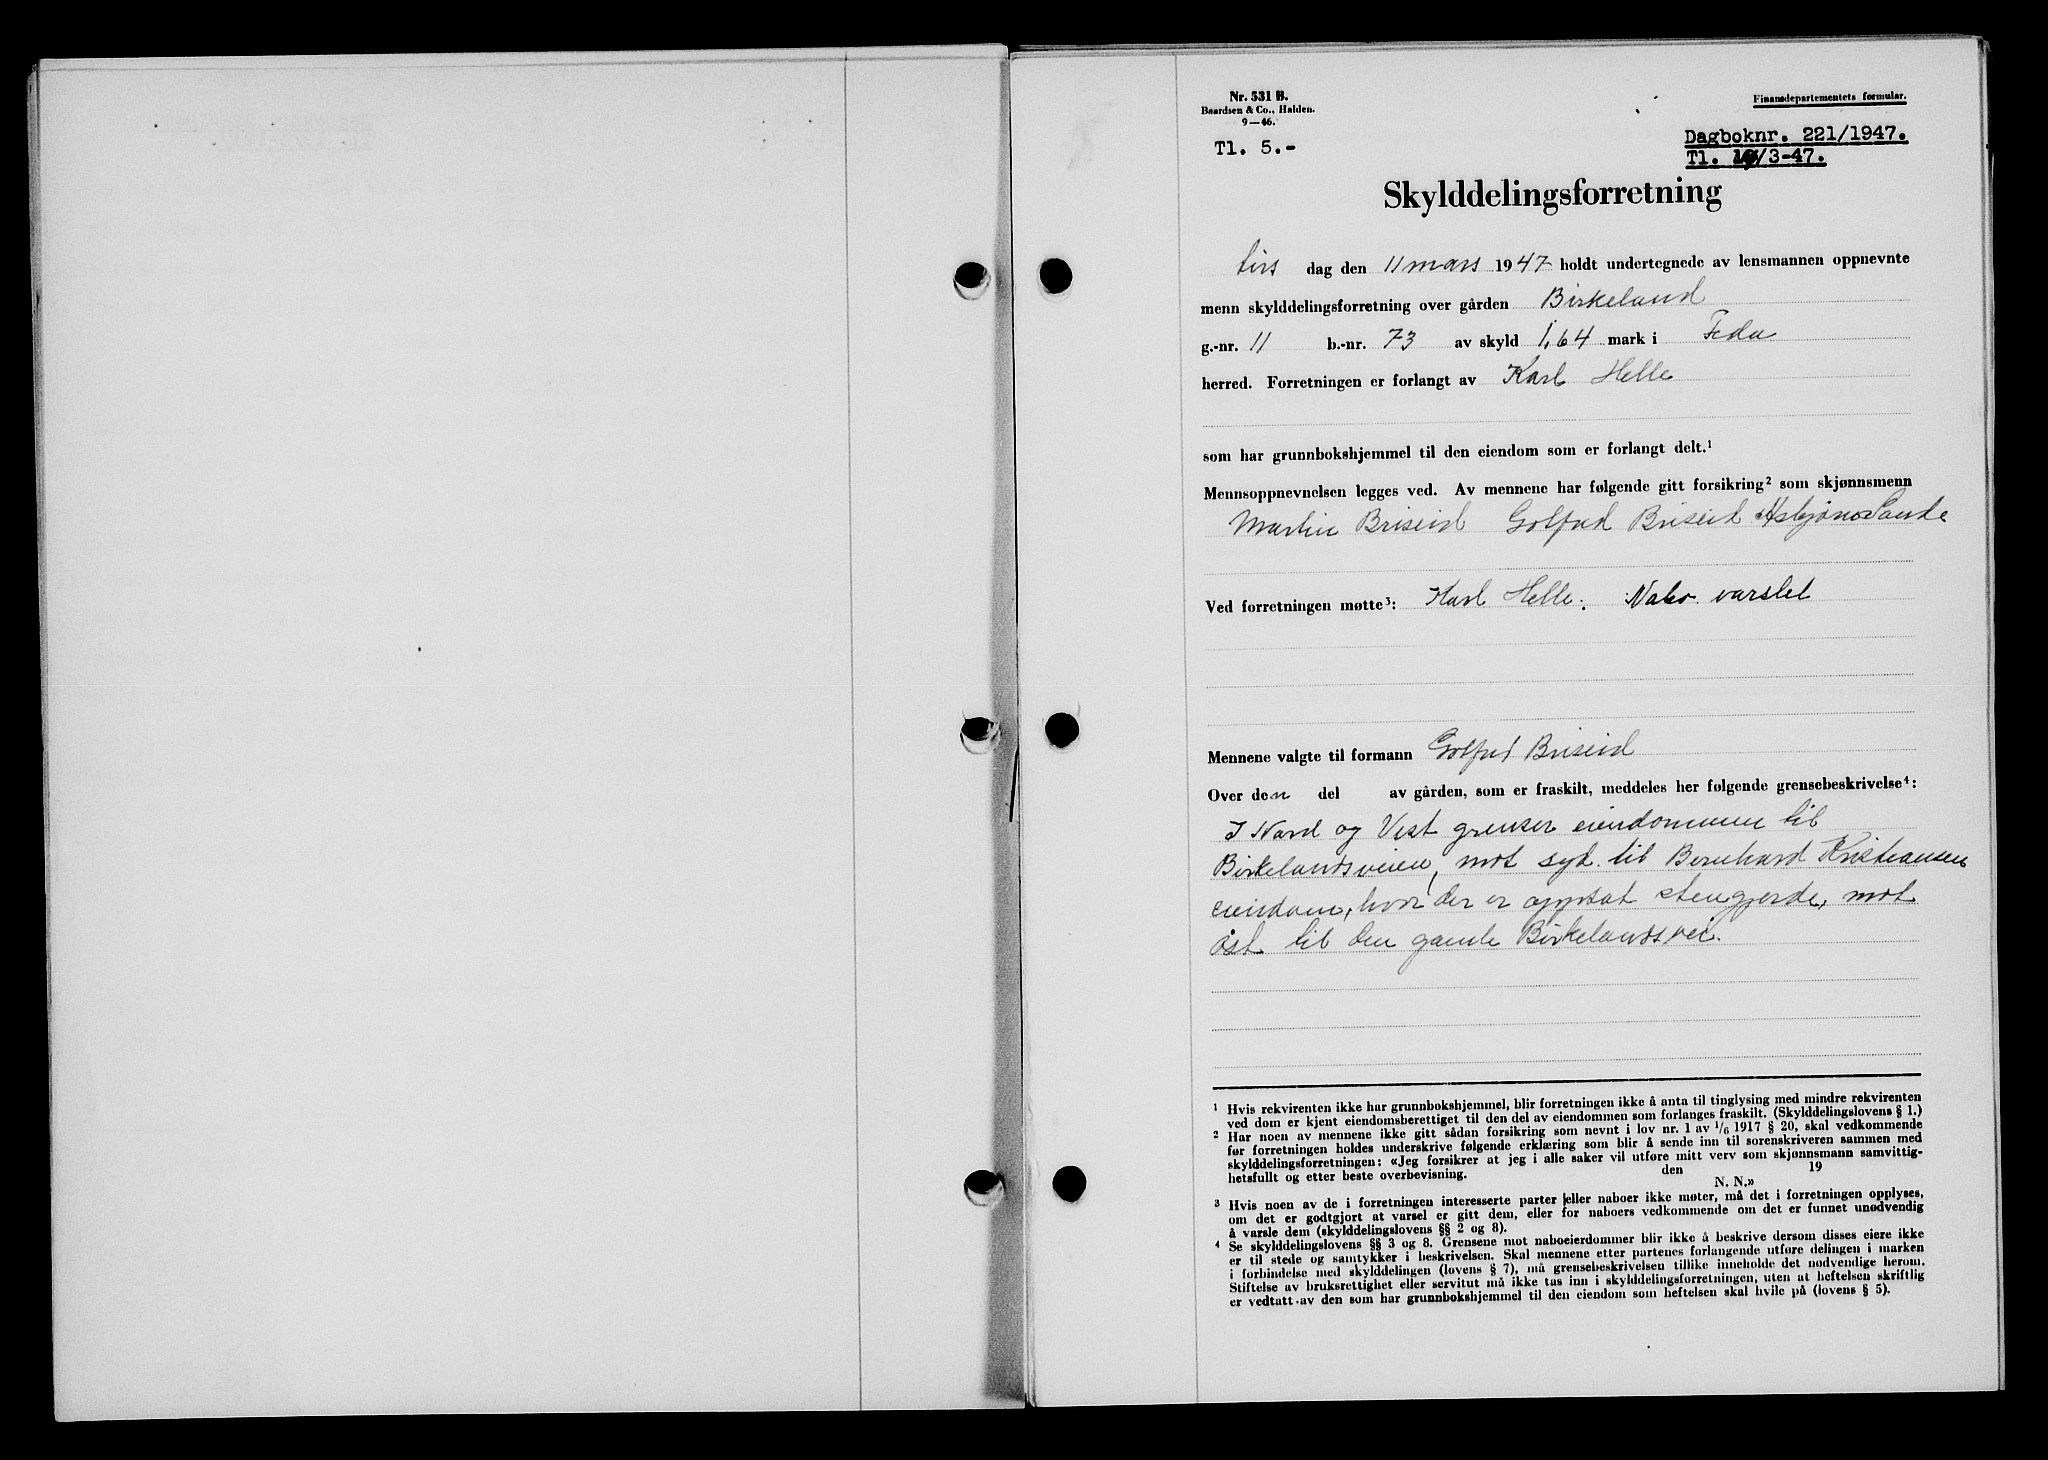 Nr. 531 B.
Baardsen & Co., Halden.
9—46.
Tl. 5.-
Finansdepartementets formular.
Dagboknr. 221/1947.
Tl. /3-47.
Skylddelingsforretning
tirs dag den 11 mars 1947 holdt undertegnede av lensmannen oppnevnte
menn skylddelingsforretning over gården Birkeland
g.-nr. 11 b.-nr. 73 av skyld 1,64 mark i Feda
herred. Forretningen er forlangt av Karl Helle
som har grunnbokshjemmel til den eiendom som er forlangt delt.¹
Mennsoppnevnelsen legges ved. Av mennene har følgende gitt forsikring² som skjønnsmenn
Martin Briseid Golfred Briseid Asbjørn Sande
Ved forretningen møtte³: Karl Helle. Nabo varslet
Mennene valgte til formann Golfred Briseid
Over den del av gården, som er fraskilt, meddeles her følgende grensebeskrivelse⁴:
I Nord og Vest grenser eiendommen til
Birkelandsveien, mot syd til Bernhard Kristiansens
eiendom, hvor der er oppsat stengjerde, mot
øst til den gamle Birkelandsvei.
¹ Hvis rekvirenten ikke har grunnbokshjemmel, blir forretningen ikke å anta til tinglysing med mindre rekvirenten
ved dom er kjent eiendomsberettiget til den del av eiendommen som forlanges fraskilt. (Skylddelingslovens § 1.)
² Har noen av mennene ikke gitt sådan forsikring som nevnt i lov nr. 1 av 1/6 1917 § 20, skal vedkommende
før forretningen holdes underskrive følgende erklæring som blir å sende inn til sorenskriveren sammen med
skylddelingsforretningen: «Jeg forsikrer at jeg i alle saker vil utføre mitt verv som skjønnsmann samvittig-
hetsfullt og etter beste overbevisning. den 19
N. N.»
³ Hvis noen av de i forretningen interesserte parter eller naboer ikke møter, må det i forretningen opplyses,
om det er godtgjort at varsel er gitt dem, eller for naboers vedkommende om det er funnet unødvendig
å varsle dem (skylddelingslovens §§ 2 og 8).
⁴ Se skylddelingslovens §§ 3 og 8. Grensene mot naboeierdommer blir ikke å beskrive dersom disses eiere ikke
er til stede og samtykker i beskrivelsen. Skal mennene etter partenes forlangende utføre delingen i marken
i forbindelse med skylddelingen (lovens § 7), må grensebeskrivelsen tillike inneholde det nødvendige herom.
Stiftelse av bruksrettighet eller servitut må ikke tas inn i skylddelingsforretningen, uten at heftelsen skriftlig
er vedtatt av den som har grunnbokshjemmel til den eiendom som heftelsen skal hvile på (lovens § 5).